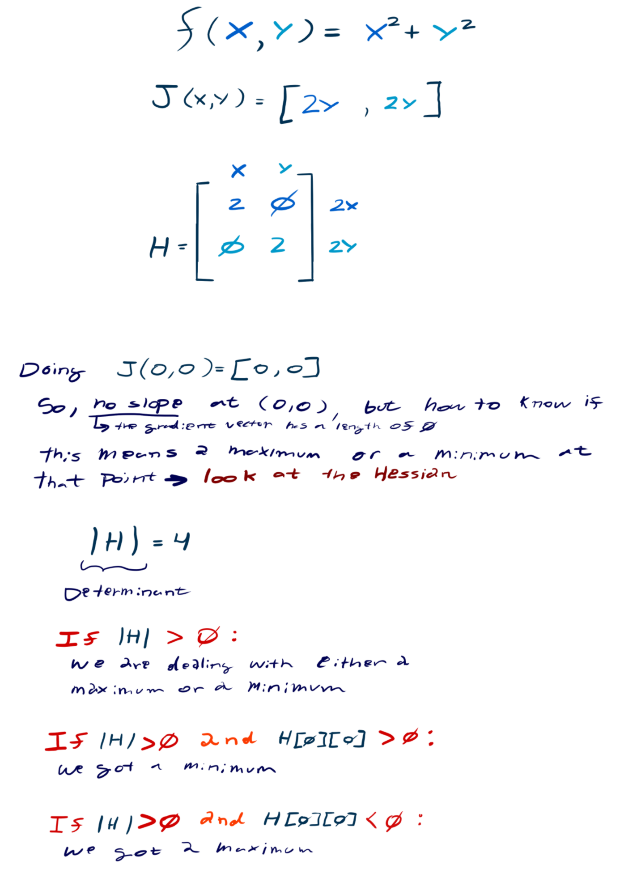 f(x,y) = x² + y²
J(x,y) = [2y , 2y]
x y
2 ∅ 2x
H =
∅ 2 2y
Doing J(0,0) = [0,0]
So, no slope at (0,0), but how to know if
↳ the gradient vector has a length of ∅
this means a maximum or a minimum at
that point → look at the Hessian
|H| = 4
Determinant
If |H| > ∅ :
we are dealing with either a
maximum or a minimum
If |H| > ∅ and H[∅][∅] > ∅ :
we got a minimum
If |H| > ∅ and H[∅][∅] < ∅ :
we got a maximum